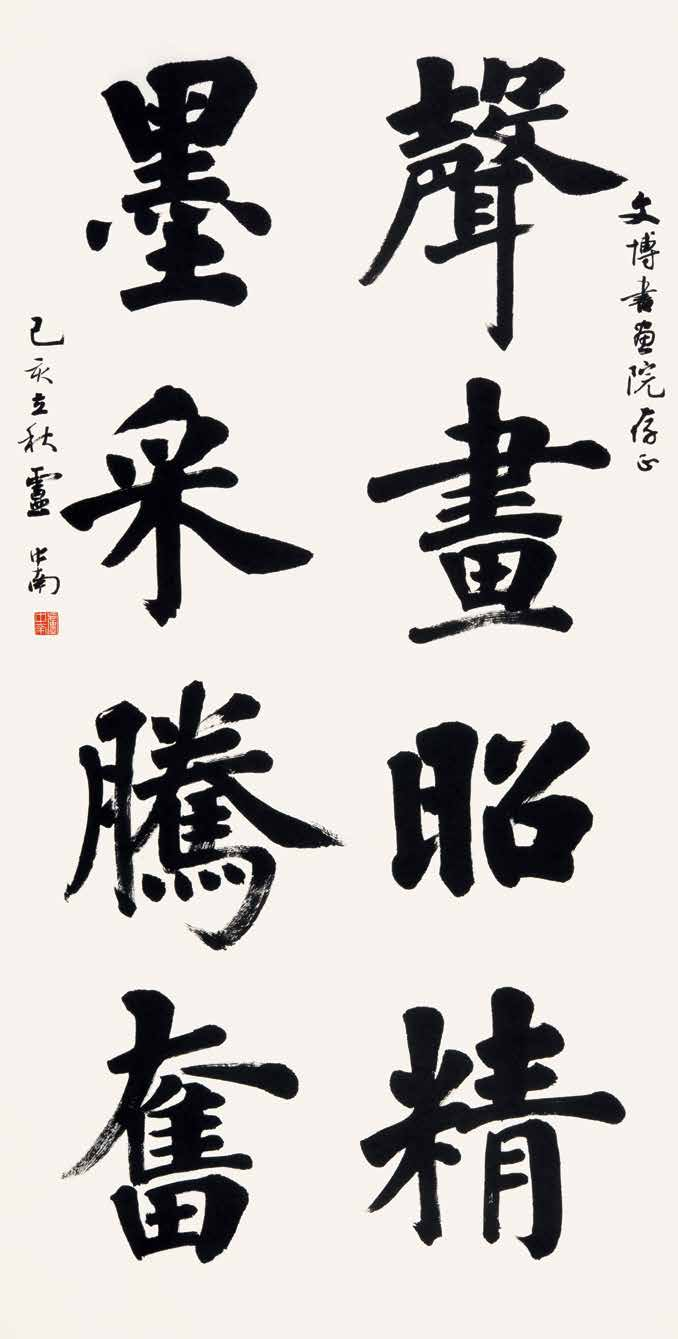 文博書畫院存正
聲畫昭精
墨采騰奮
己亥立秋盧中南